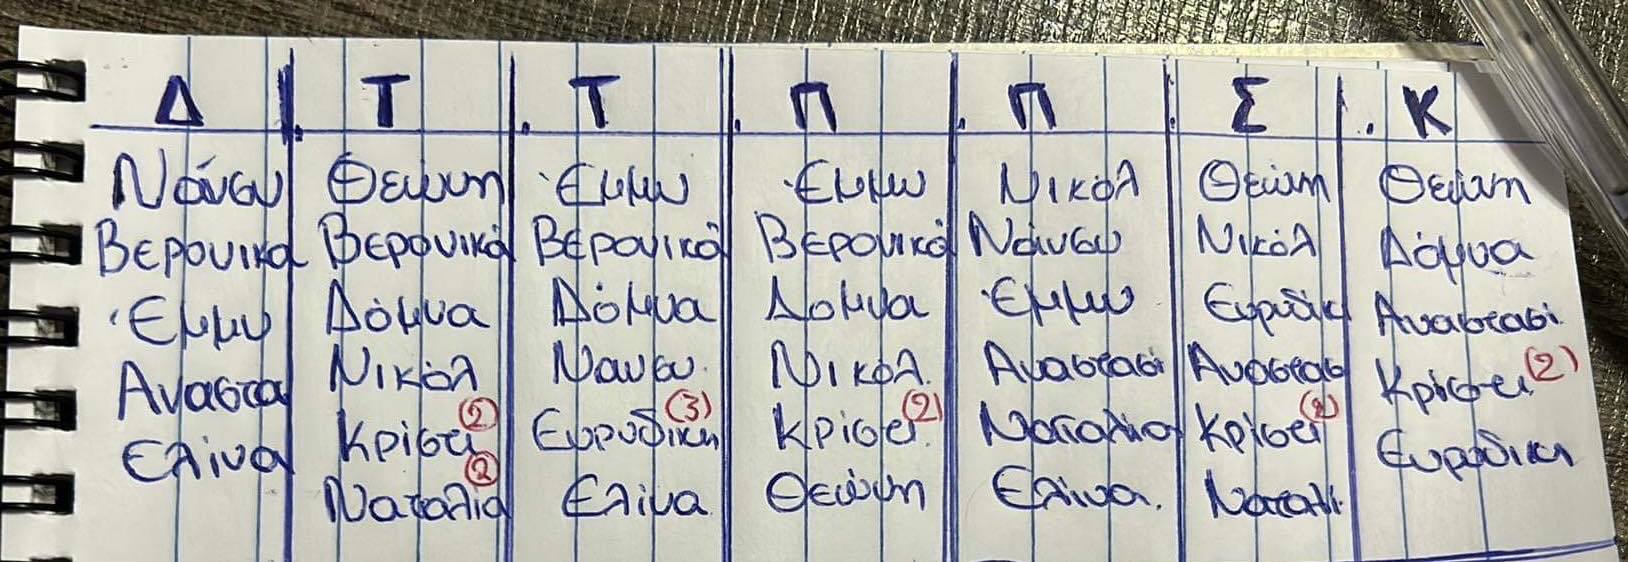 Δ Τ Τ Π Π Σ Κ
Νάνσυ Θεώνη Έμμυ Έμμυ Νικόλ Θεώνη Θεώνη
Βερονικα Βερονικά Βερονικά Βερονικά Νάνσυ Νικόλ Δόμνα
Έμμυ Δόμνα Δόμνα Δομνα Έμμυ Ευρυδίκ Αναστασί
Αναστα Νικόλ Νανσυ. Νικόλ. Αναστασι Αναστασ Κρίστι (2)
Ελίνα Κρίστι (2) Ευρυδίκη (3) Κρίστι. (2) Ναταλια Κρίστι (2) Ευρυδικη
Ναταλία (2) Ελίνα Θεώνη Ελίνα. Ναταλι